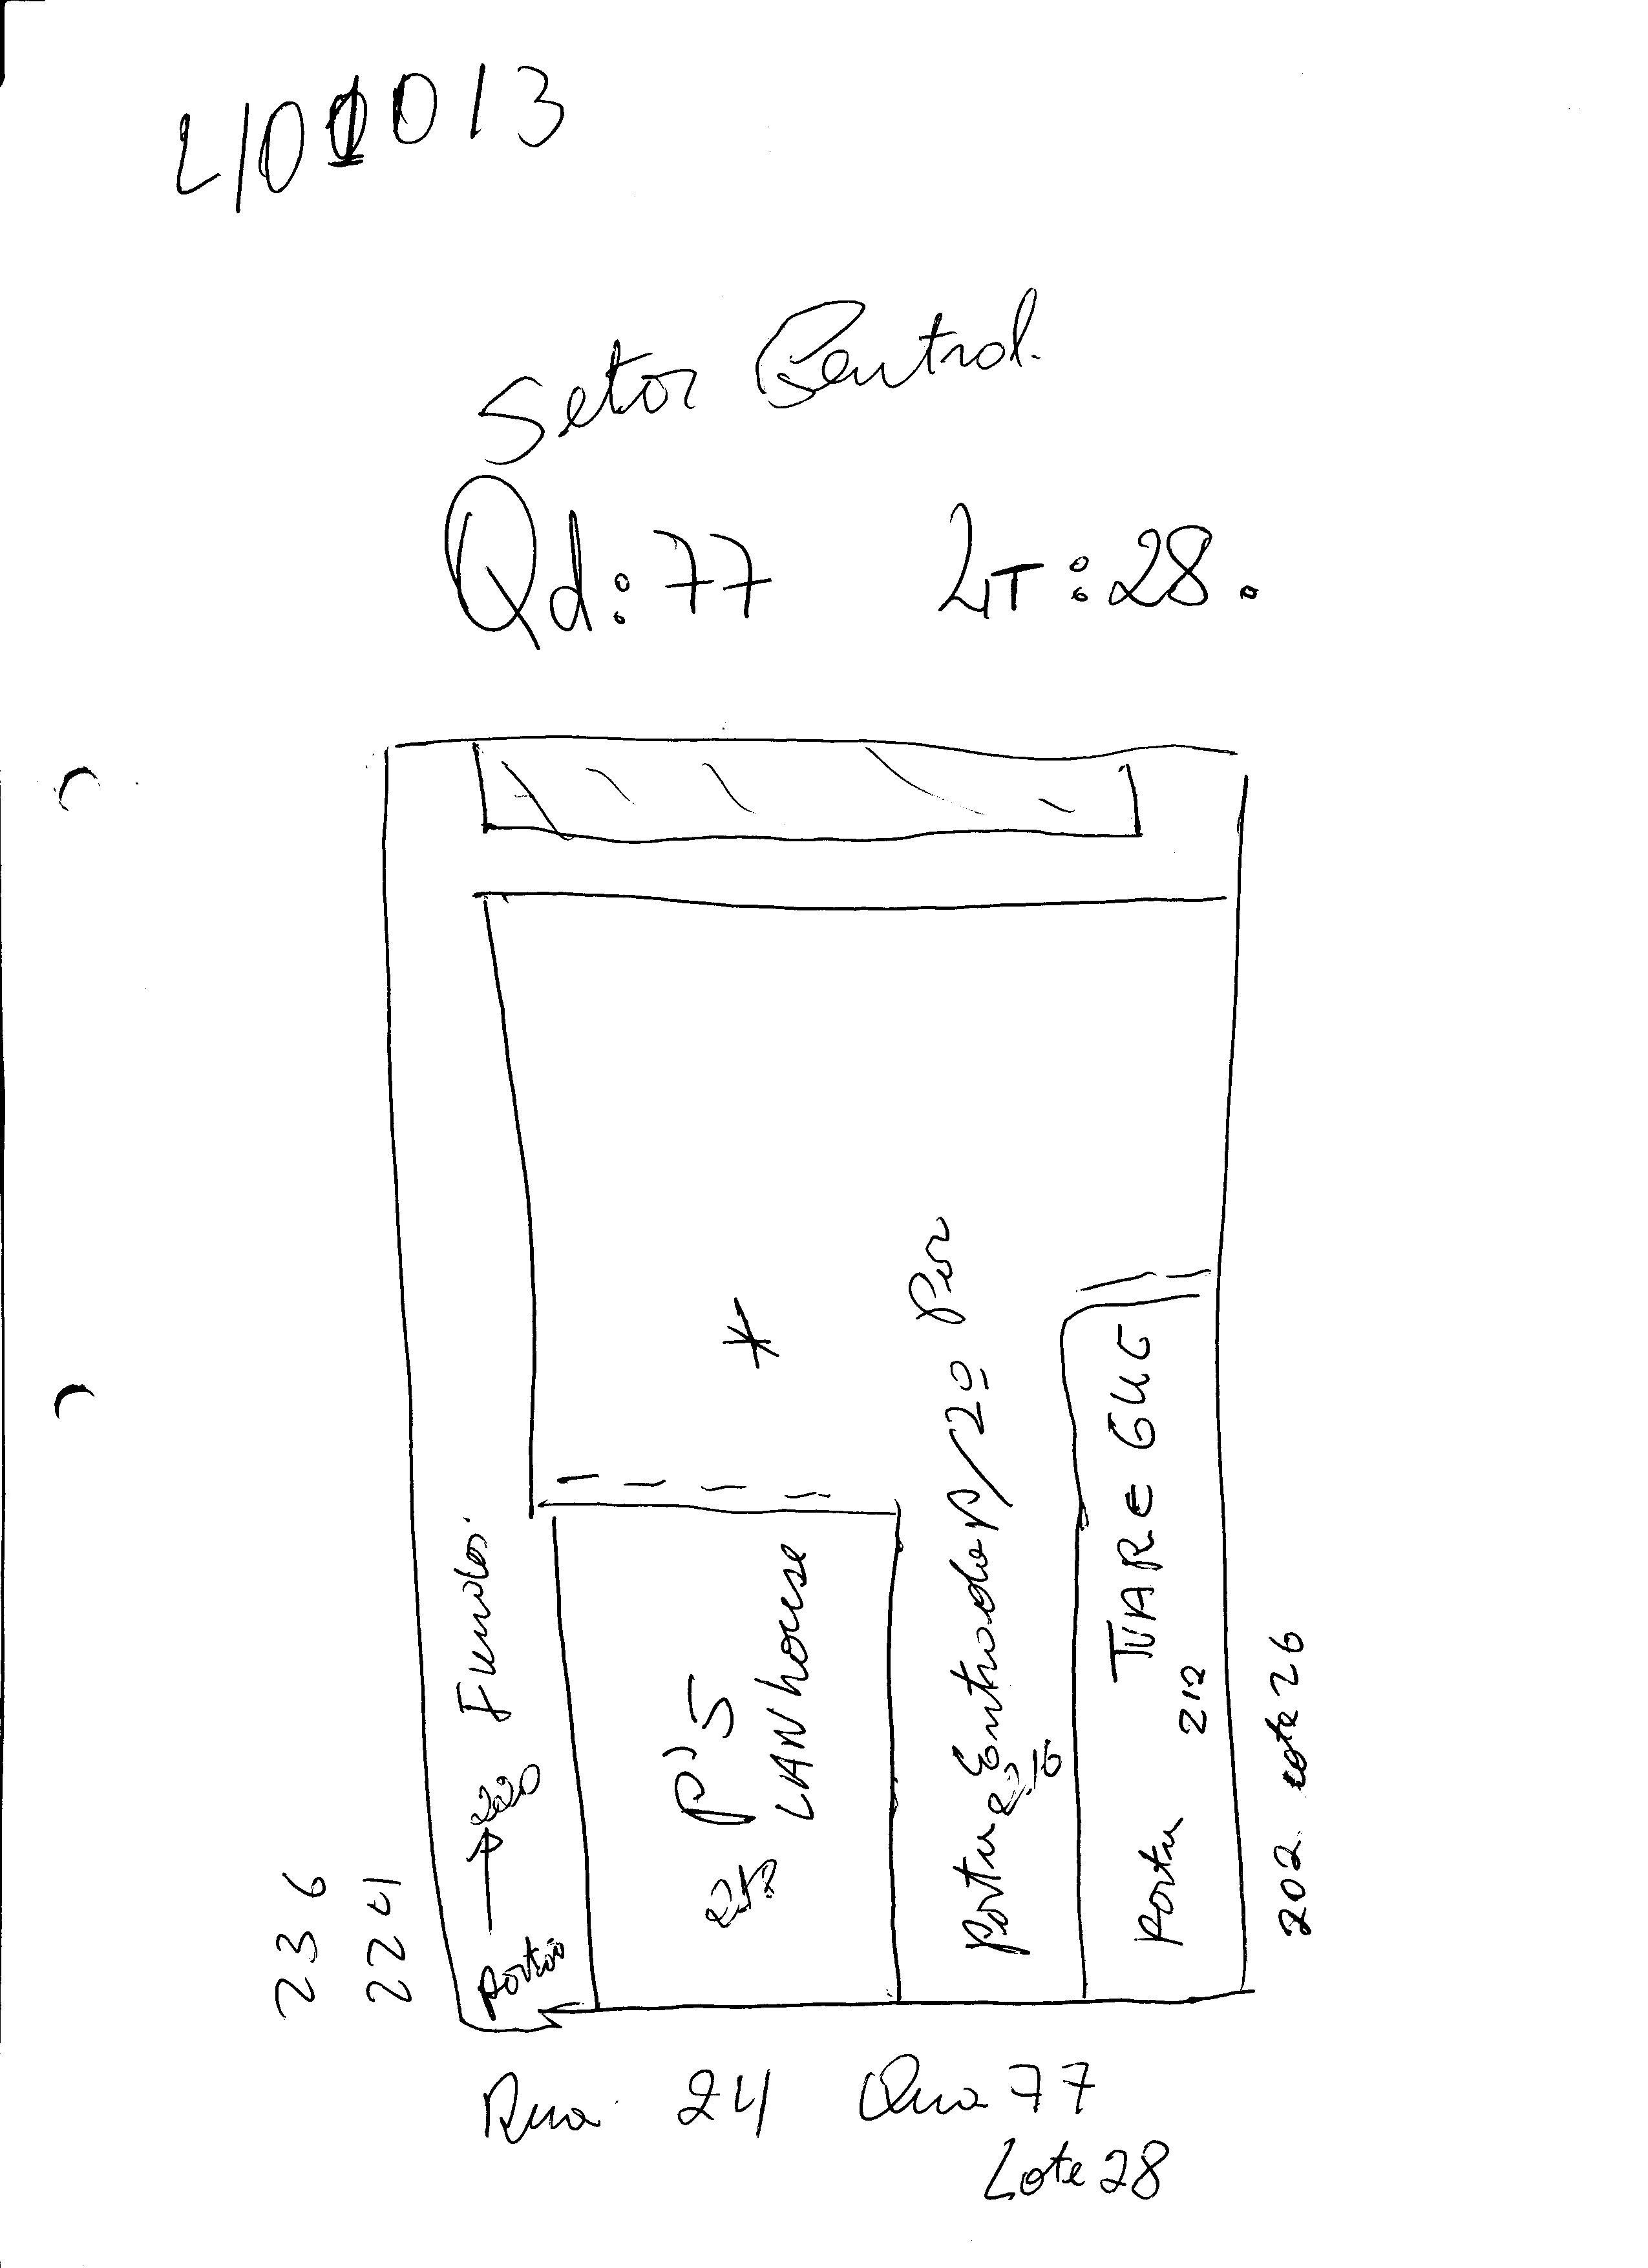 401013
Setor Central.
Qd: 77 LT: 28.
236
224
Portão 220 Fundos.
P'S
LANhouse
Porta Entrada p/2º Piv
216
Porta TUAREGUE
212
202 Lote 26
Rua 24 Qua 77
Lote 28